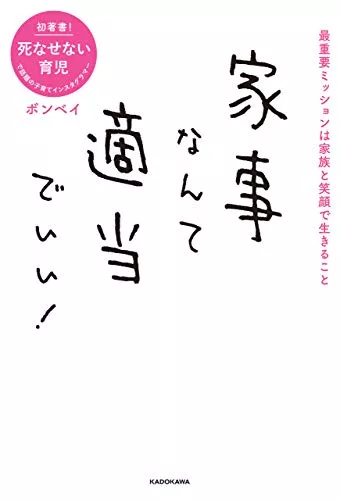 最重要ミッションは家族と笑顔で生きること
家事
なんて
適当
でいい!
初著書!
死なせない
育児
で話題の子育てインスタグラマー
ボンベイ
KADOKAWA